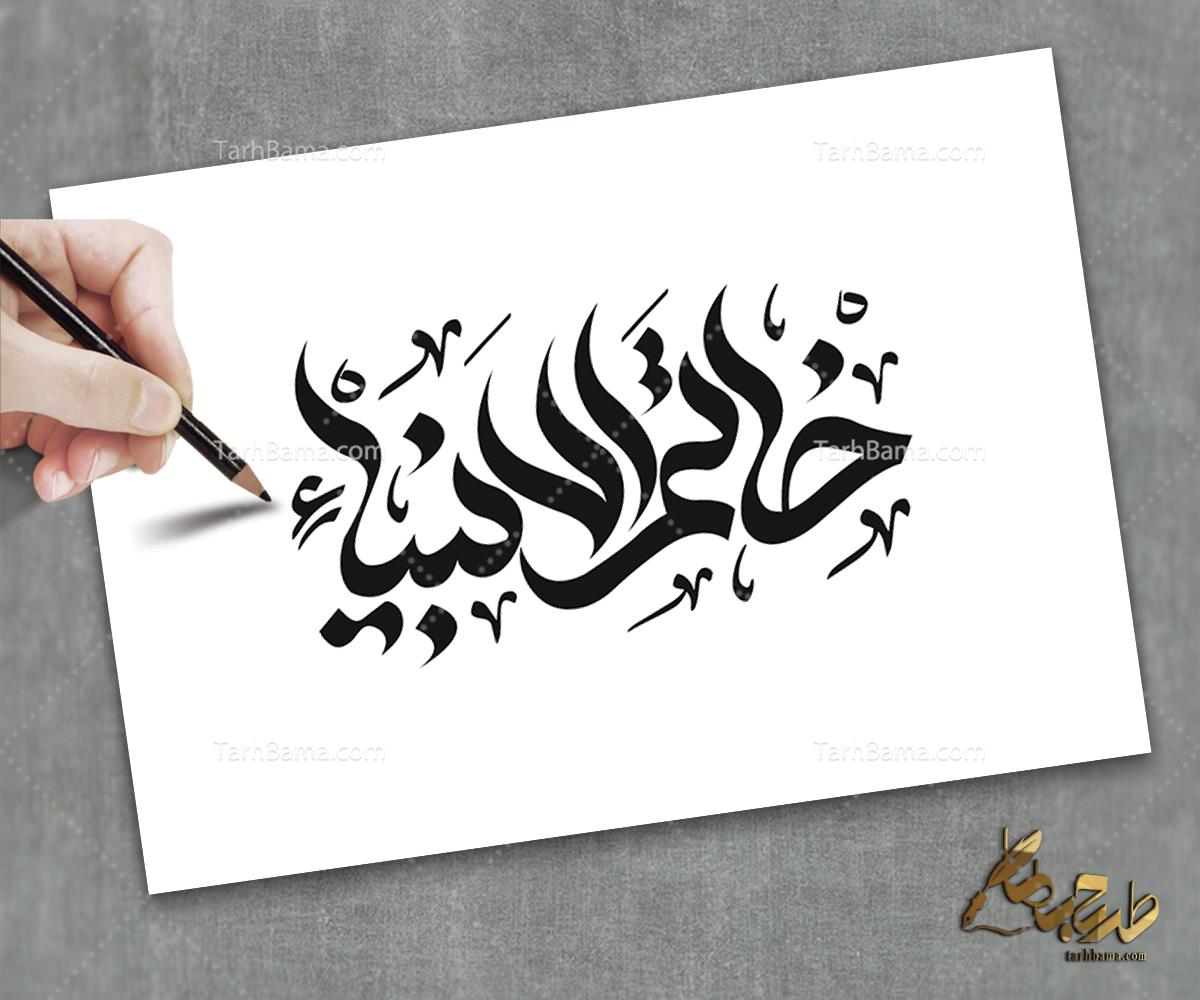 TarhBama.com TarhBama.com
خاتم الانبیاء
TarhBama.com TarhBama.com
TarhBama.com TarhBama.com
طرح باما
tarhbama.com